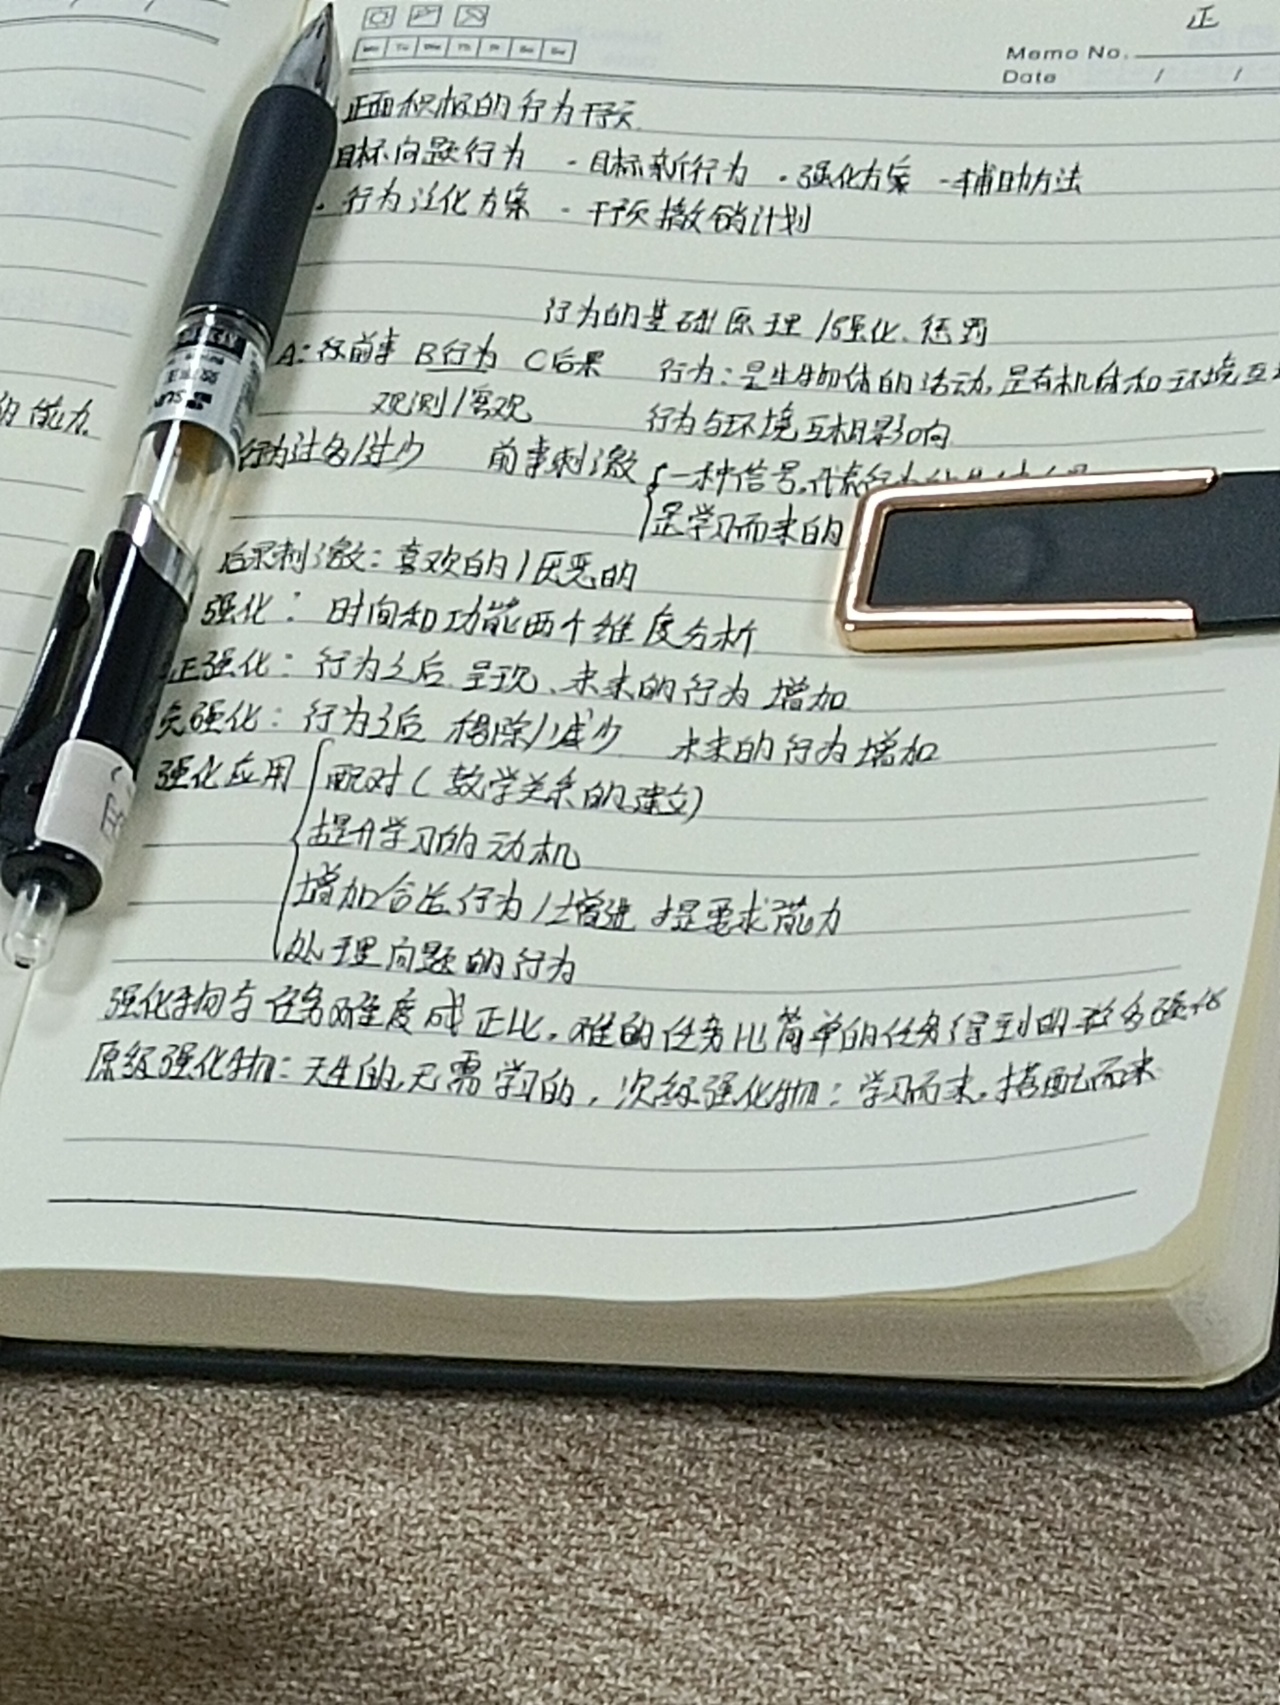 正
Memo No.
Date / /
Mo Tu We Th Fr Sa Su
正面积极的行为干预
目标问题行为 - 目标新行为 · 强化方案 - 辅助方法
· 行为泛化方案 - 干预撤销计划
行为的基础原理/强化、惩罚
A: 前事 B行为 C后果 行为:是生物体的活动,是有机体和环境互
的能力. 观测/客观 行为与环境互相影响
行为过多/过少 前事刺激 一种信号,代表行为
是学习而来的
后果刺激:喜欢的/厌恶的
强化: 时间和功能两个维度分析
正强化: 行为之后 呈现、未来的行为 增加
负强化: 行为之后 移除/减少 未来的行为增加
强化应用 配对( 教学关系的建立)
提升学习的动机
增加合适行为/增进 提要求能力
处理问题的行为
强化 与任务难度成正比,难的任务比简单的任务得到的 多强化
原级强化物:天生的,无需学习的,次级强化物:学习而来,搭配而来